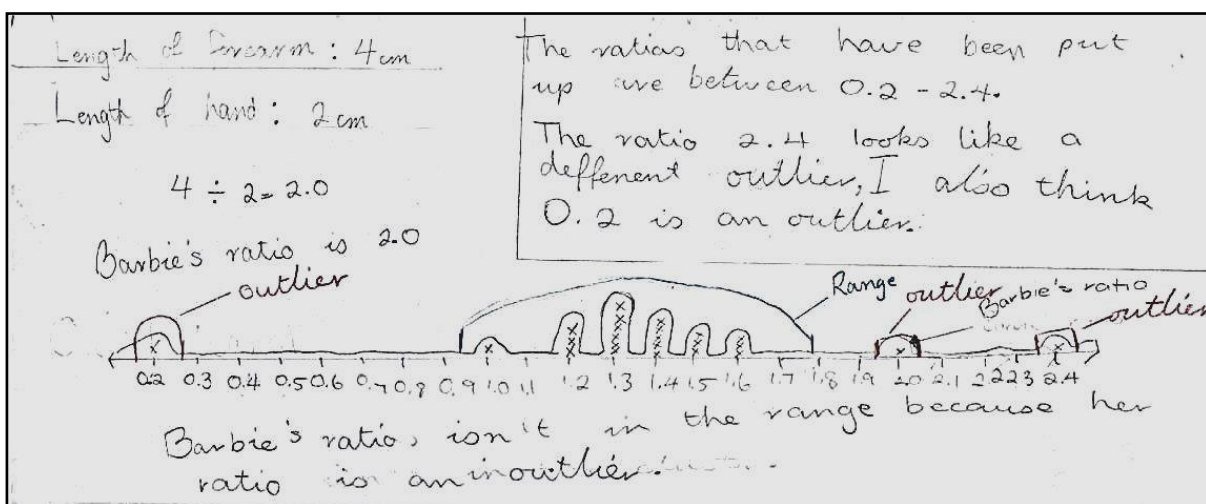 Length of forearm: 4cm
Length of hand: 2cm
4 ÷ 2 = 2.0
Barbie's ratio is 2.0
The ratios that have been put
up are between 0.2 - 2.4.
The ratio 2.4 looks like a
defferent outlier, I also think
0.2 is an outlier.
outlier
Range
outlier
Barbie's ratio
outlier
0.2 0.3 0.4 0.5 0.6 0.7 0.8 0.9 1.0 1.1 1.2 1.3 1.4 1.5 1.6 1.7 1.8 1.9 2.0 2.1 2.2 2.3 2.4
Barbie's ratio, isn't in the range because her
ratio is an outlier.